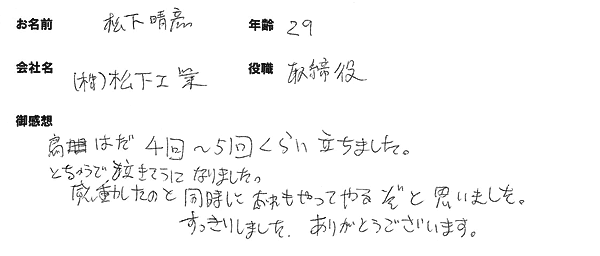 お名前 松下晴彦 年齢 29
会社名 (株)松下工業 役職 取締役
御感想
鳥はだ 4回～5回くらい立ちました。
とちゅうで泣きそうになりました。
感動したのと同時におれもやってやるぞと思いました。
すっきりしました、ありがとうございます。